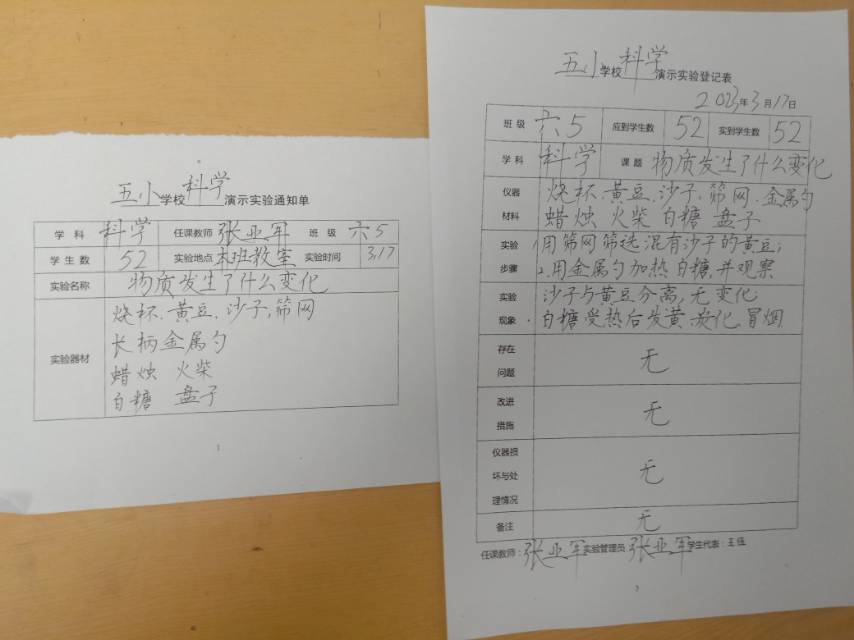 五小学校科学演示实验通知单
学科 科学 任课教师 张业军 班级 六5
学生数 52 实验地点 本班教室 实验时间 3.17
实验名称 物质发生了什么变化
实验器材
烧杯、黄豆、沙子、筛网
长柄金属勺
蜡烛 火柴
白糖 盘子
1
五小学校科学演示实验登记表
2023年3月17日
班级 六5 应到学生数 52 实到学生数 52
学科 科学 课题 物质发生了什么变化
仪器 烧杯、黄豆、沙子、筛网、金属勺
材料 蜡烛 火柴 白糖 盘子
实验 1.用筛网筛选混有沙子的黄豆;
步骤 2.用金属勺加热白糖,并观察
实验 沙子与黄豆分离,无变化
现象 白糖受热后发黄、炭化、冒烟
存在
问题 无
改进
措施 无
仪器损
坏与处 无
理情况
备注 无
任课教师:张业军 实验管理员 张业军 学生代表:王伍